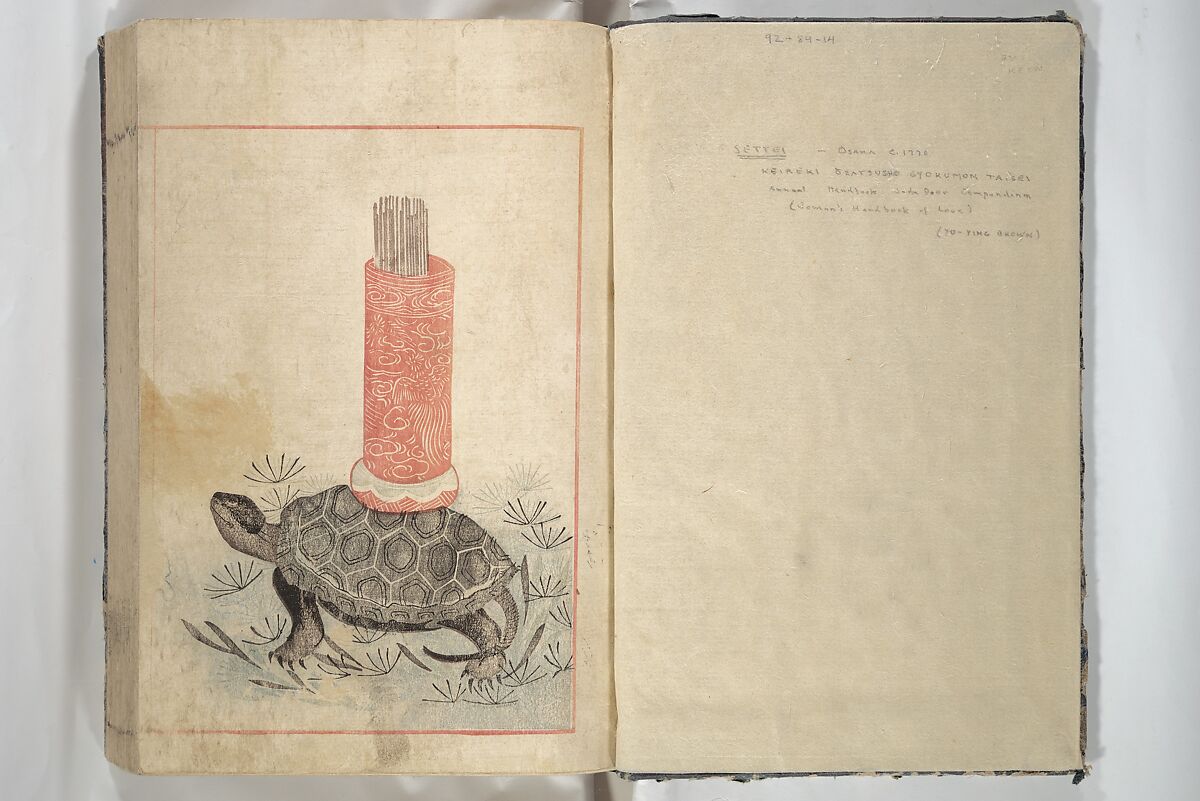 92-89-14
SETTEI — OSAKA C.1770
KEIREKI ŌZATSUSHO GYOKUMON TAISEI
Annual Handbook Jade Door Compendium
(Woman's Handbook of Love)
(YU-YING BROWN)